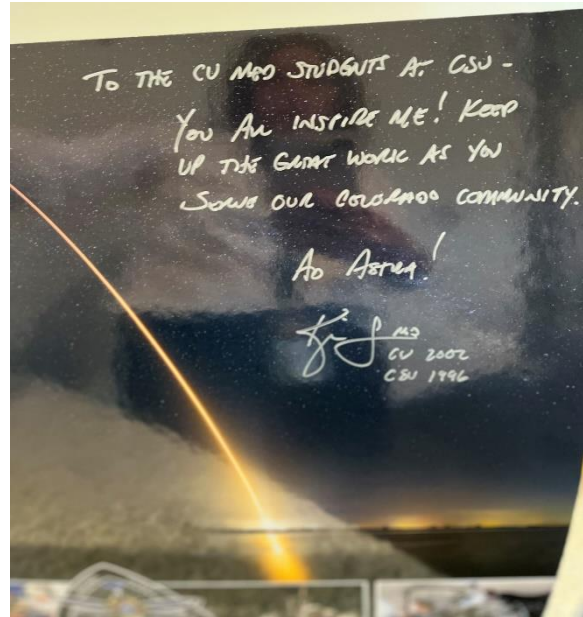 To THE CU MED STUDENTS AT CSU -
YOU ALL INSPIRE ME! KEEP
UP THE GREAT WORK AS YOU
SERVE OUR COLORADO COMMUNITY.
AD ASTRA!
MD
CU 2002
CSU 1996